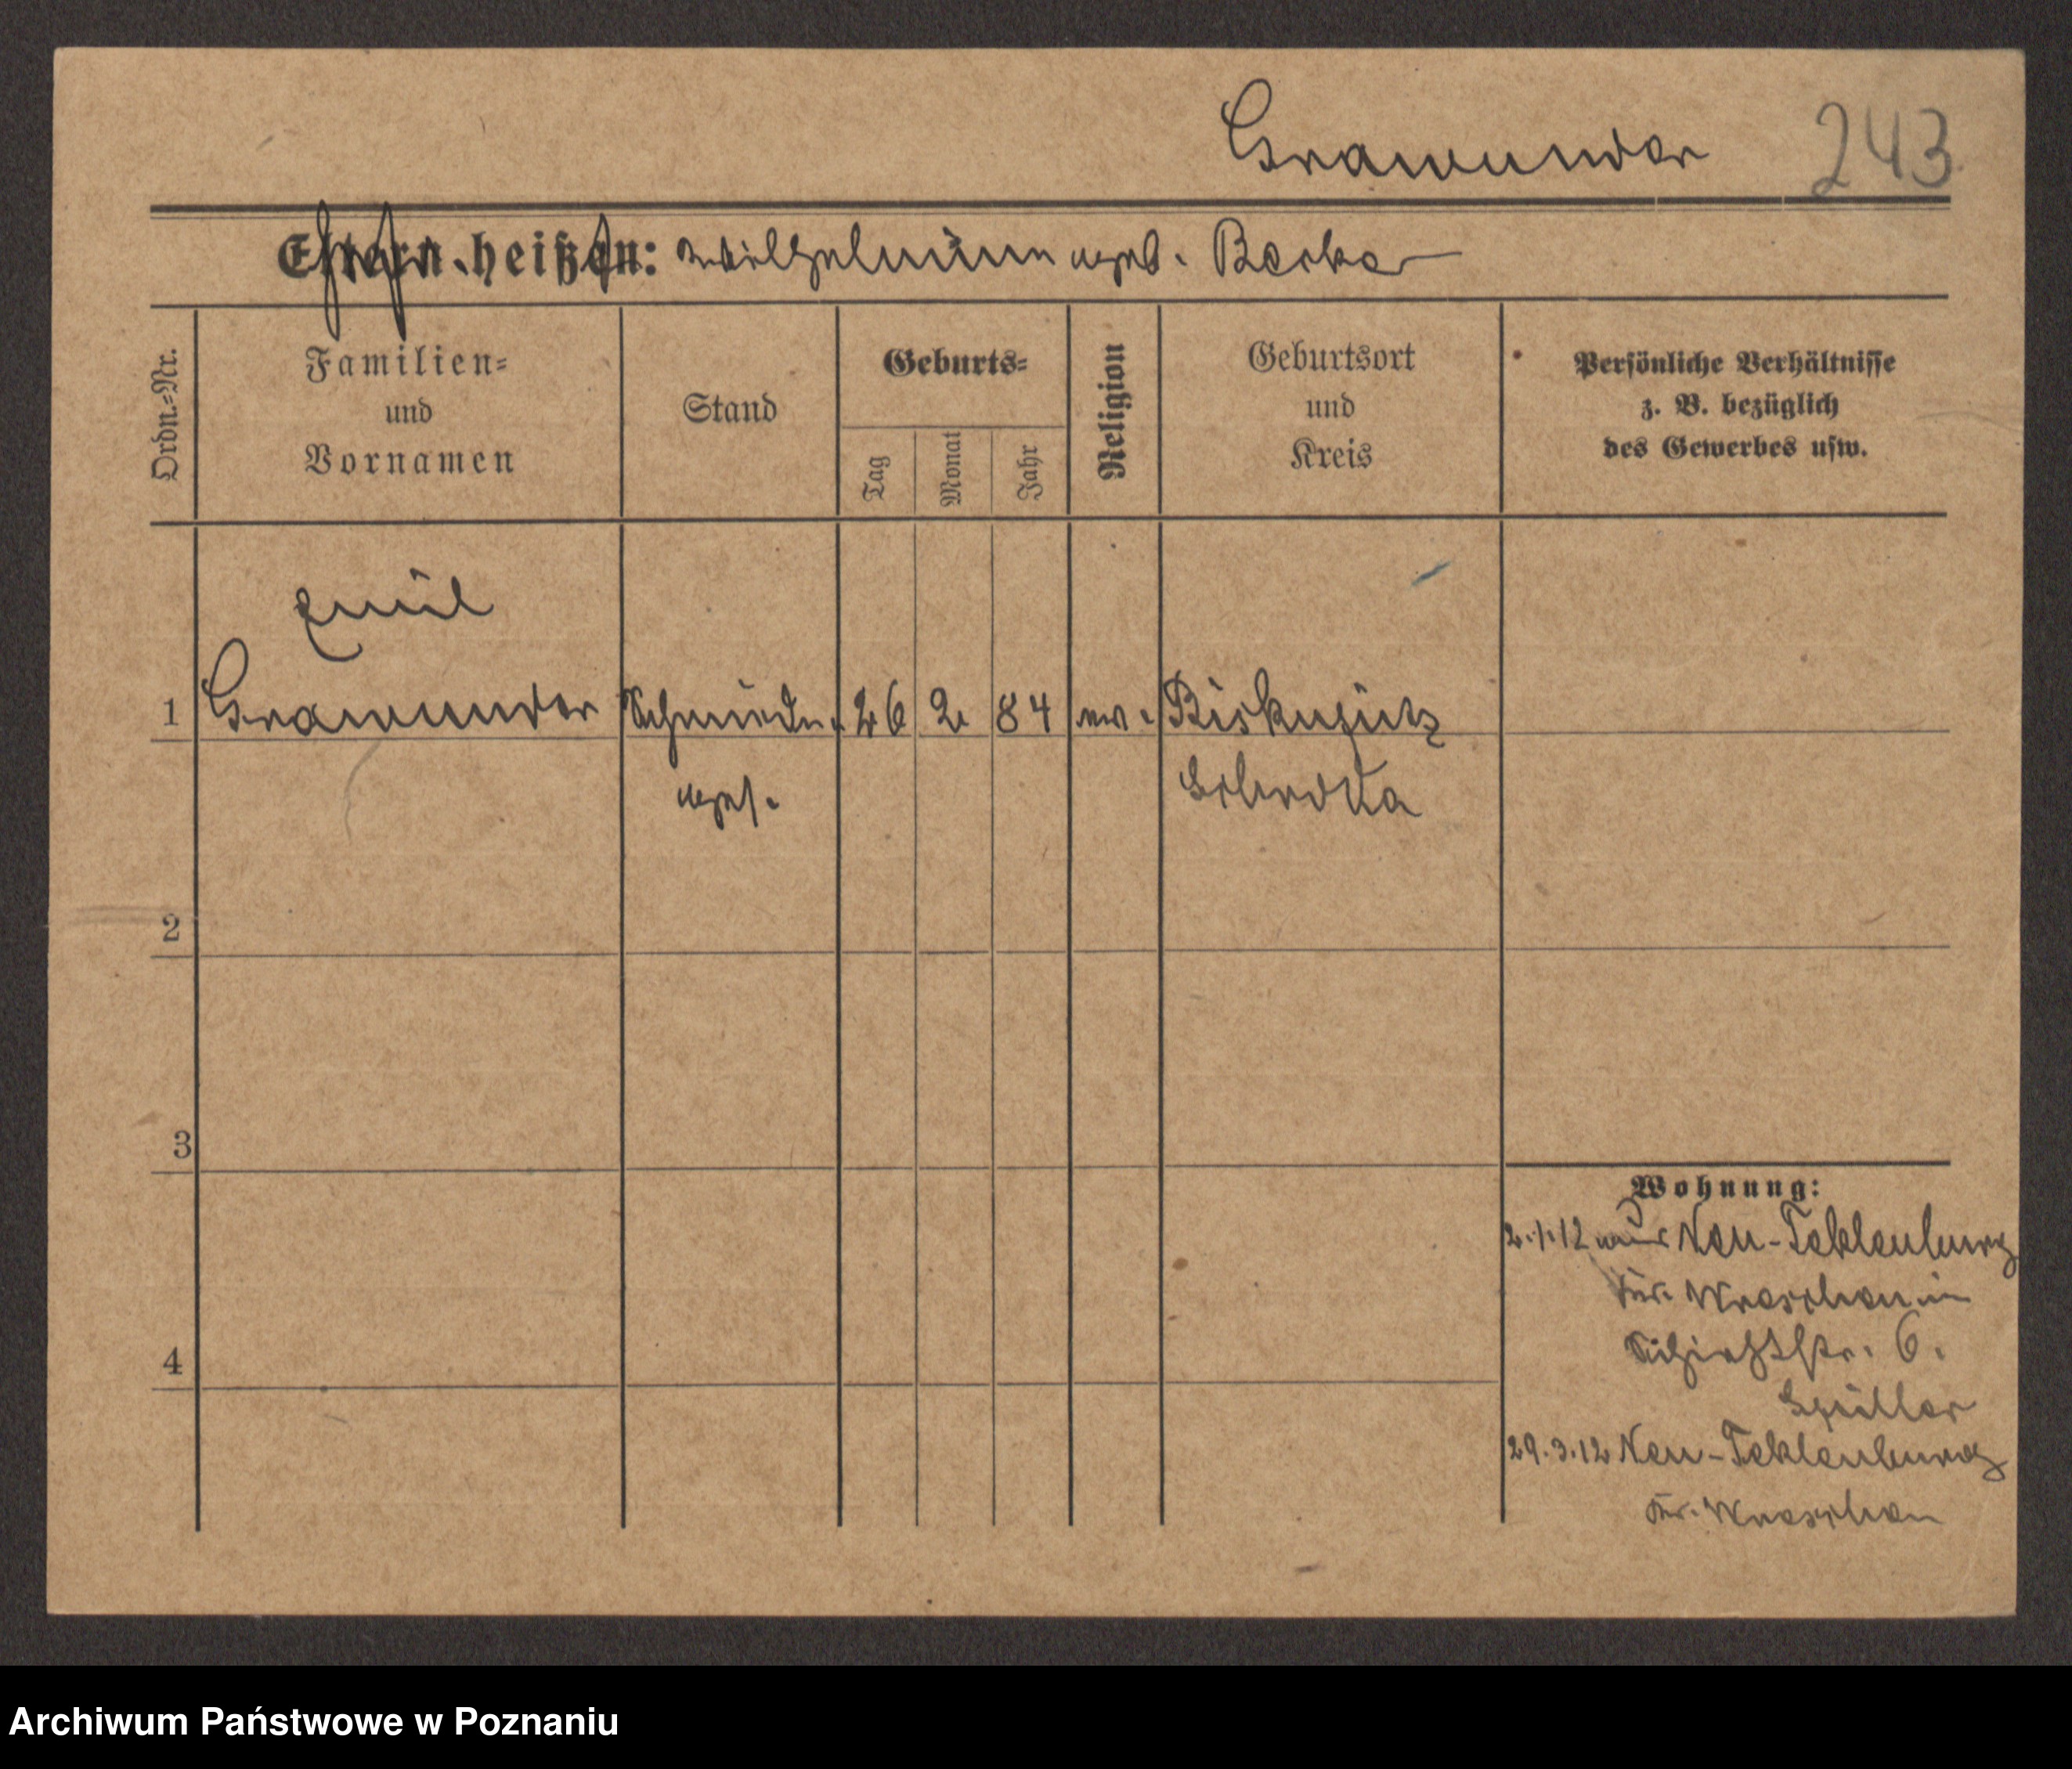 Grawunder 243
Eltern heißen: Wilhelmine geb. Becker
Ordn.=Nr.
Familien=
und
Vornamen
Stand
Geburts=
Tag
Monat
Jahr
Religion
Geburtsort
und
Kreis
Persönliche Verhältnisse
z. B. bezüglich
des Gewerbes usw.
Emil
1 Grawunder Schmiede- 26 2 84 ev. Biskupitz
ges. Schroda
2
3
4
Wohnung:
2.1.12 aus Neu-Tecklenburg
Kr. Wreschen in
6.
29.3.12 Neu-Tecklenburg
Kr. Wreschen
Archiwum Państwowe w Poznaniu